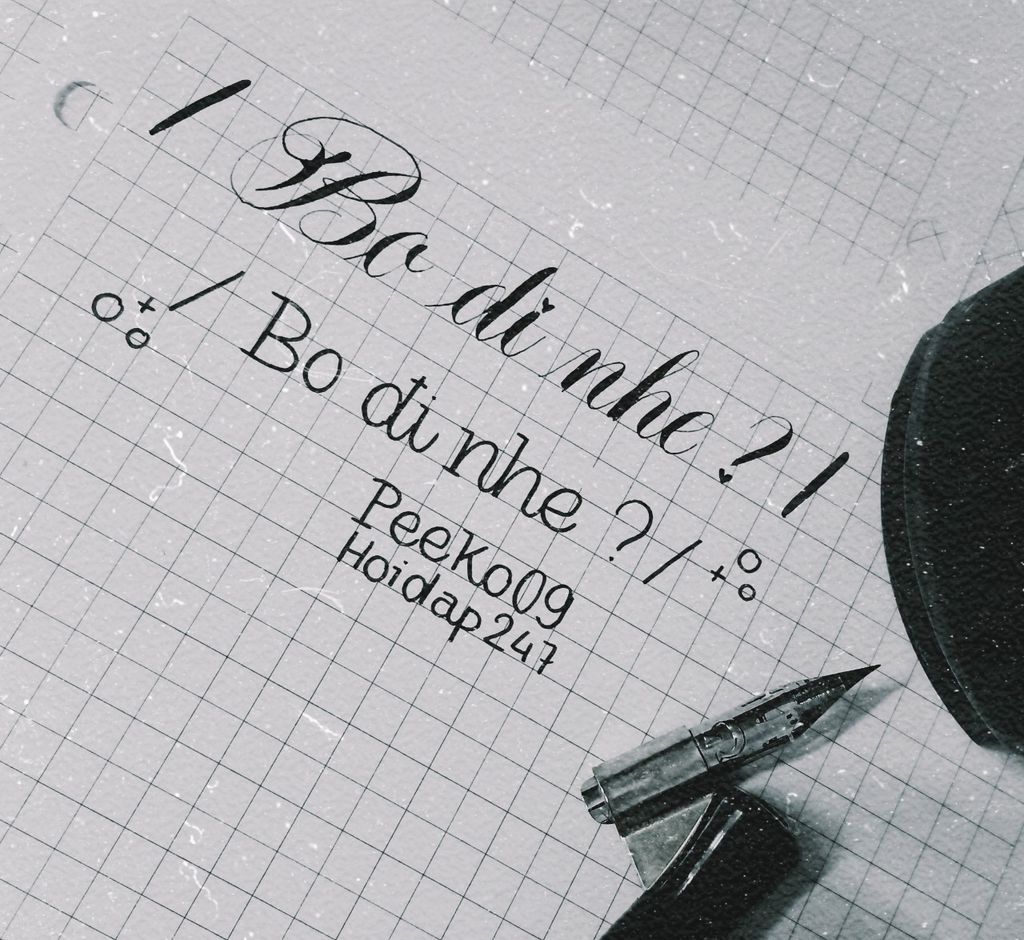 / Bo di nhe ? /
/ Bo đi nhe ? /
PeeKo09
Hoidap247